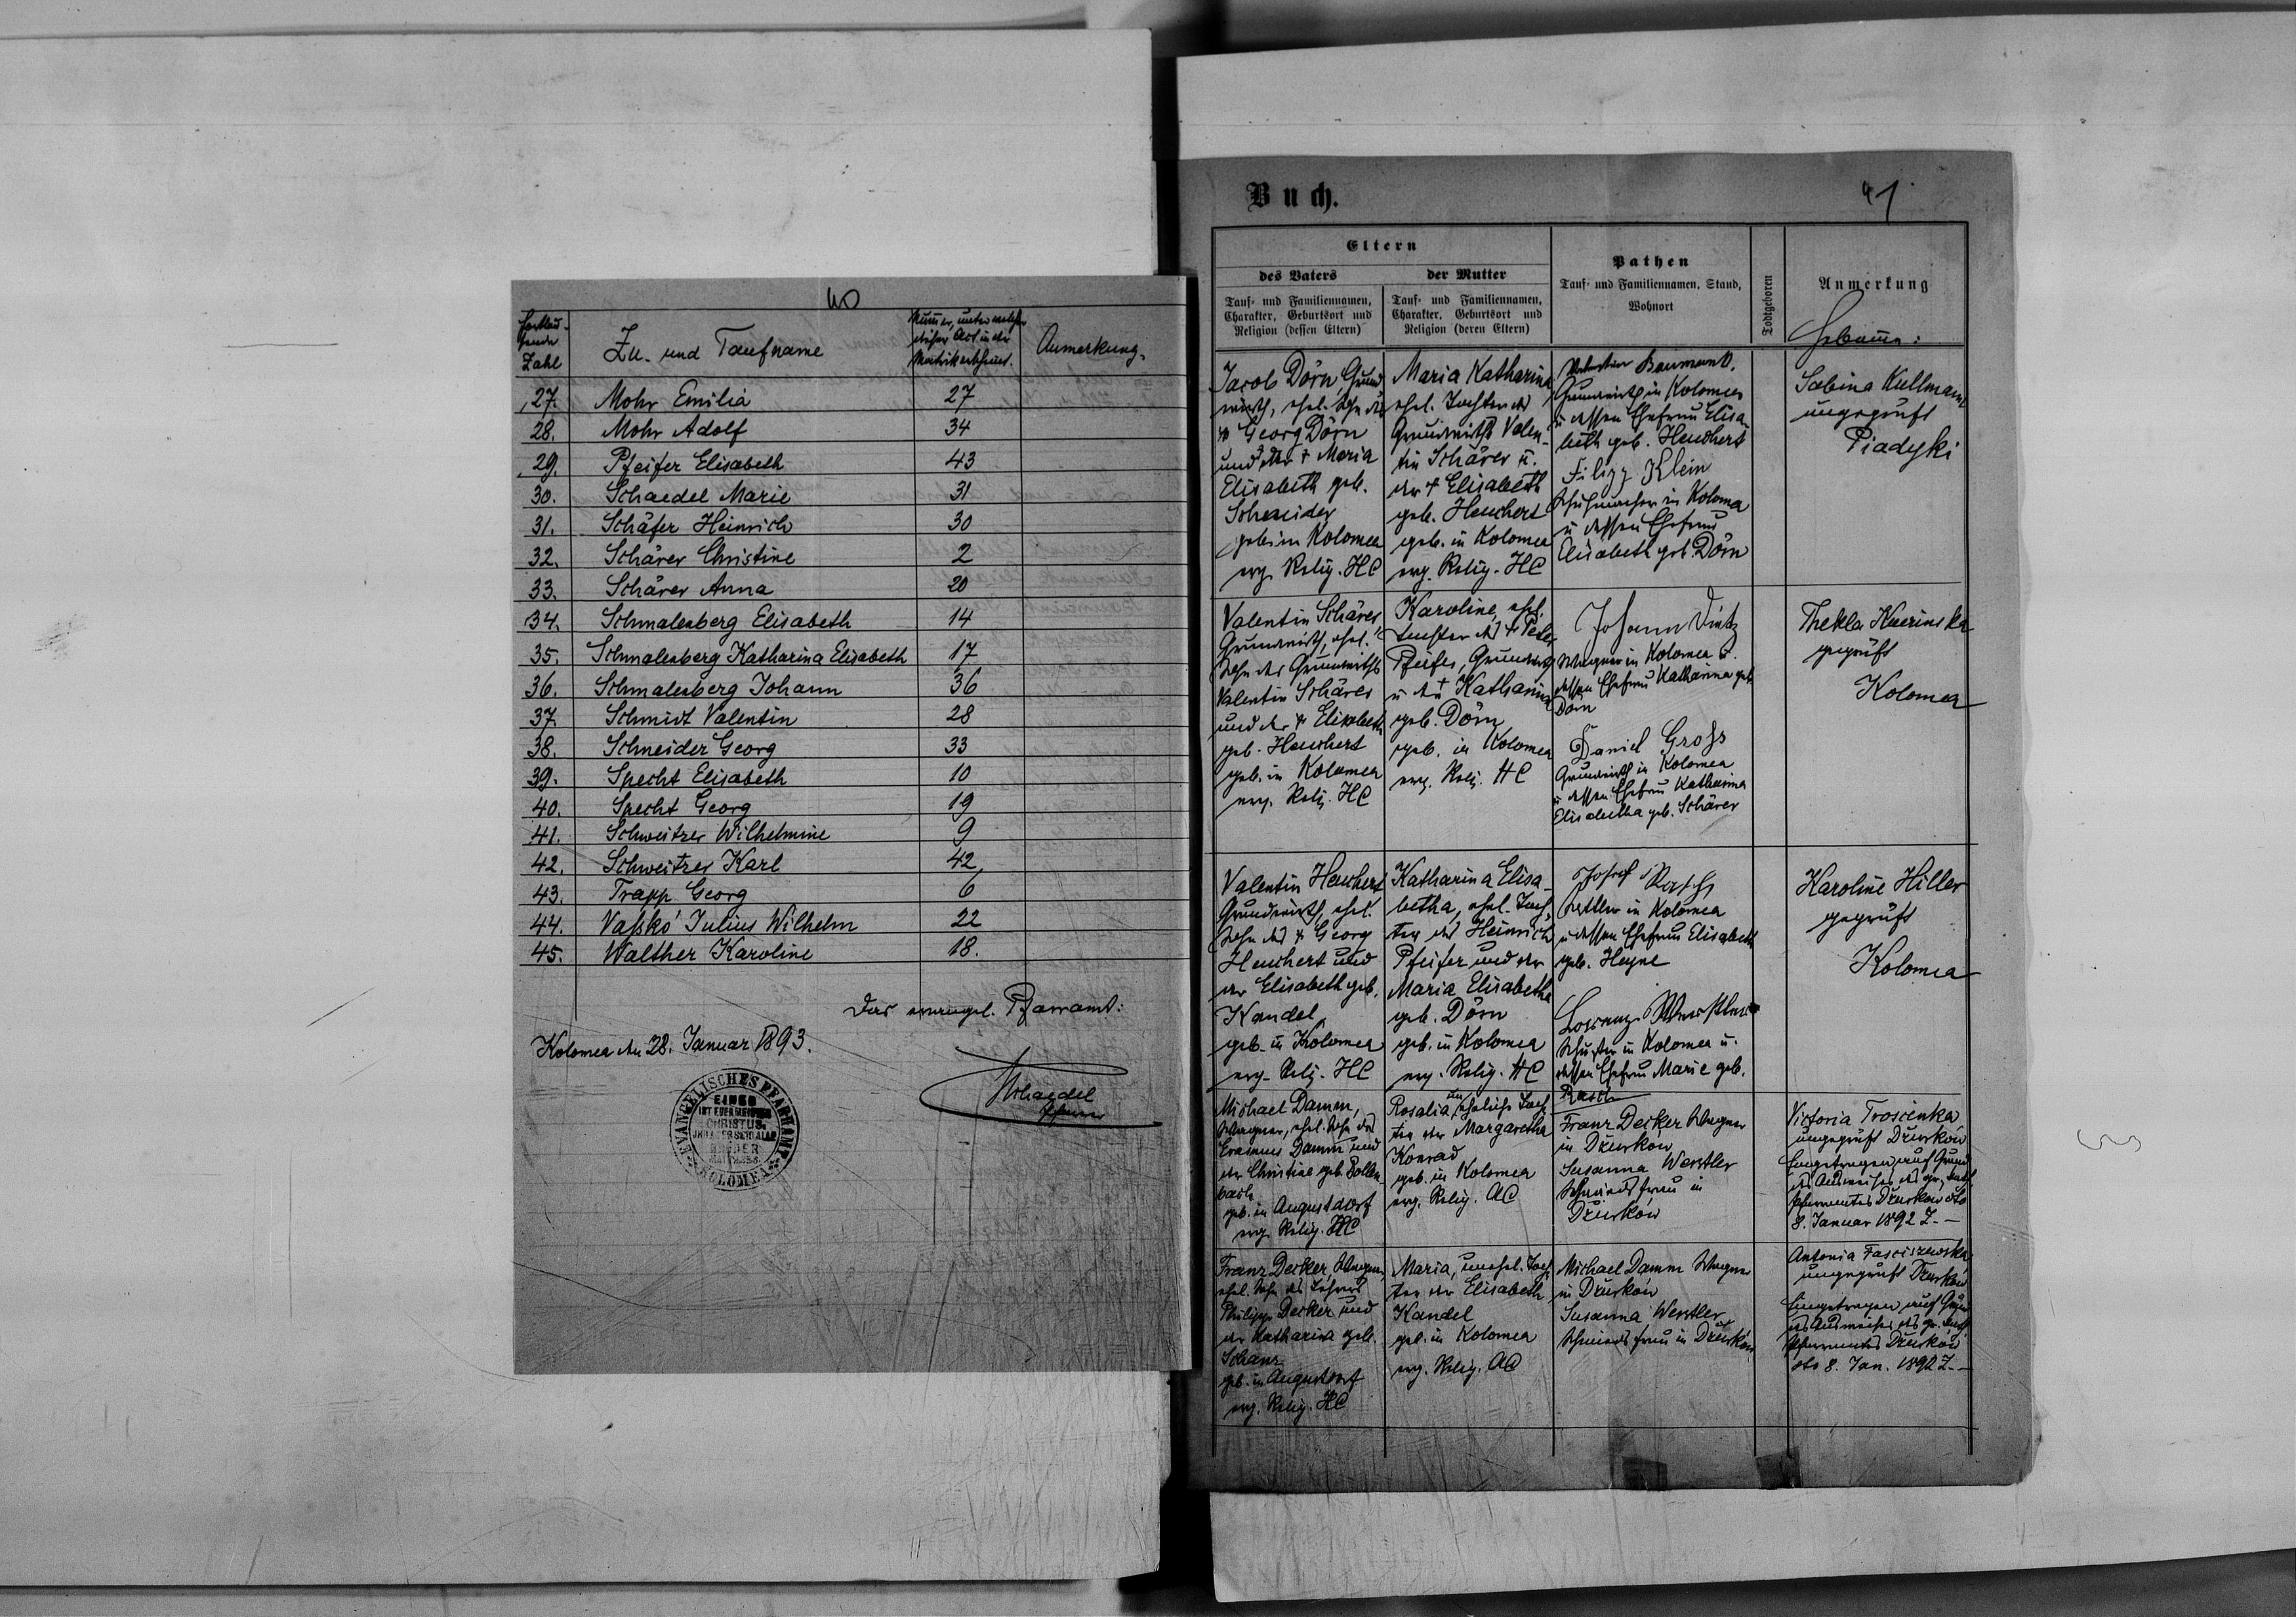 40
Fortlau-
fende
Zahl
Zu- und Taufname
Nummer, unter welcher
dieser Act in der
Matrik erscheint.
Anmerkung.
27. Mohr Emilia 27
28. Mohr Adolf 34
29. Pfeifer Elisabeth 43
30. Schaedel Marie 31
31. Schäfer Heinrich 30
32. Schärer Christine 2
33. Schärer Anna 20
34. Schmalenberg Elisabeth 14
35. Schmalenberg Katharina Elisabeth 17
36. Schmalenberg Johann 36
37. Schmidt Valentin 28
38. Schneider Georg 33
39. Specht Elisabeth 10
40. Specht Georg 19
41. Schweitzer Wilhelmine 9
42. Schweitzer Karl 42
43. Trapp Georg 6
44. Vaßkó Julius Wilhelm 22
45. Walther Karoline 18.
Das evangel. Pfarramt:
Kolomea den 28. Januar 1893.
Schaedel
Pfarrer
EVANGELISCHES PFARRAMT
KOLOMEA
EINER
IST EUER MEISTER
CHRISTUS
IHR ABER SEID ALLE
BRÜDER
Buch.
41
Eltern
des Vaters
Tauf- und Familiennamen,
Charakter, Geburtsort und
Religion (dessen Eltern)
der Mutter
Tauf- und Familiennamen,
Charakter, Geburtsort und
Religion (deren Eltern)
Pathen
Tauf- und Familiennamen, Stand,
Wohnort
Todtgeboren
Anmerkung
Hebamme:
Jacob Dörn, Grund
wirth, ehel. Sohn des
+ Georg Dörn
und der + Maria
Elisabeth geb.
Schneider
geb. in Kolomea
evg. Relig. HC
Maria Katharina
ehel. Tochter des
Grundwirths Valen-
tin Schärer u.
der + Elisabeth
geb. Heuchert
geb. in Kolomea
evg. Relig. HC
Baumann
Grundwirth in Kolomea
u dessen Ehefrau Elisa-
beth geb. Heuchert
Filipp Klein
Schuhmacher in Kolomea
u dessen Ehefrau
Elisabeth geb. Dörn
Sabina Kullmann
ungeprüft
Piadyki
Valentin Schärer
Grundwirth, ehel.
Sohn des Grundwirths
Valentin Schärer
und der + Elisabeth
geb. Heuchert
geb. in Kolomea
evg. Relig. HC
Karoline, ehel.
Tochter des + Peter
Pfeifer, Grundwirth
u der + Katharina
geb. Dörn
geb. in Kolomea
evg. Relig. HC
Johann Dietz
Wagner in Kolomea u.
dessen Ehefrau Katharina geb.
Dörn
Daniel Groß
Grundwirth in Kolomea
u dessen Ehefrau Katharina
Elisabetha geb. Schärer
Thekla
geprüft
Kolomea
Valentin Heuchert
Grundwirth, ehel.
Sohn des + Georg
Heuchert und
der Elisabeth geb.
Kandel
geb. in Kolomea
evg. Relig. HC
Katharina Elisa-
betha, ehel. Toch-
ter des Heinrich
Pfeifer und der
Maria Elisabetha
geb. Dörn
geb. in Kolomea
evg. Relig. HC
Josef Rasch
Sattler in Kolomea
u dessen Ehefrau Elisabeth
geb. Heyne
Lorenz
Schuster in Kolomea u.
dessen Ehefrau Marie geb.
Rasch
Karoline Hiller
geprüft
Kolomea
Michael Damm,
Wagner, ehel. Sohn des
Erasmus Damm und
der Christine geb. Bollen-
bach
geb. in Augustdorf
evg. Relig. HC
Rosalia, uneheliche Toch-
ter der Margaretha
Konrad
geb. in Kolomea
evg. Relig. AC
Franz Decker Wagner
in Dzurków
Susanna Werstler
Schmiedsfrau in
Dzurków
Victoria Troscienka
ungeprüft Dzurków
Eingetragen auf Grund
des Ausweises des gr. kath.
Pfarramtes Dzurków dto
8. Januar 1892 Z. –
Franz Decker, Wagner,
ehel. Sohn des Lehrers
Philipp Decker und
der Katharina geb.
Schanz
geb. in Augustdorf
evg. Relig. HC
Maria, unehel. Toch-
ter der Elisabeth
Kandel
geb. in Kolomea
evg. Relig. AC
Michael Damm Wagner
in Dzurków
Susanna Werstler
Schmiedsfrau in Dzurków
Antonia Fasciszewska
ungeprüft Dzurków
Eingetragen auf Grund
des Ausweises des gr. kath.
Pfarramtes Dzurków
dto 8. Jan. 1892 Z. –